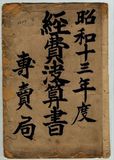 昭和十三年度
經費決算書
專賣局